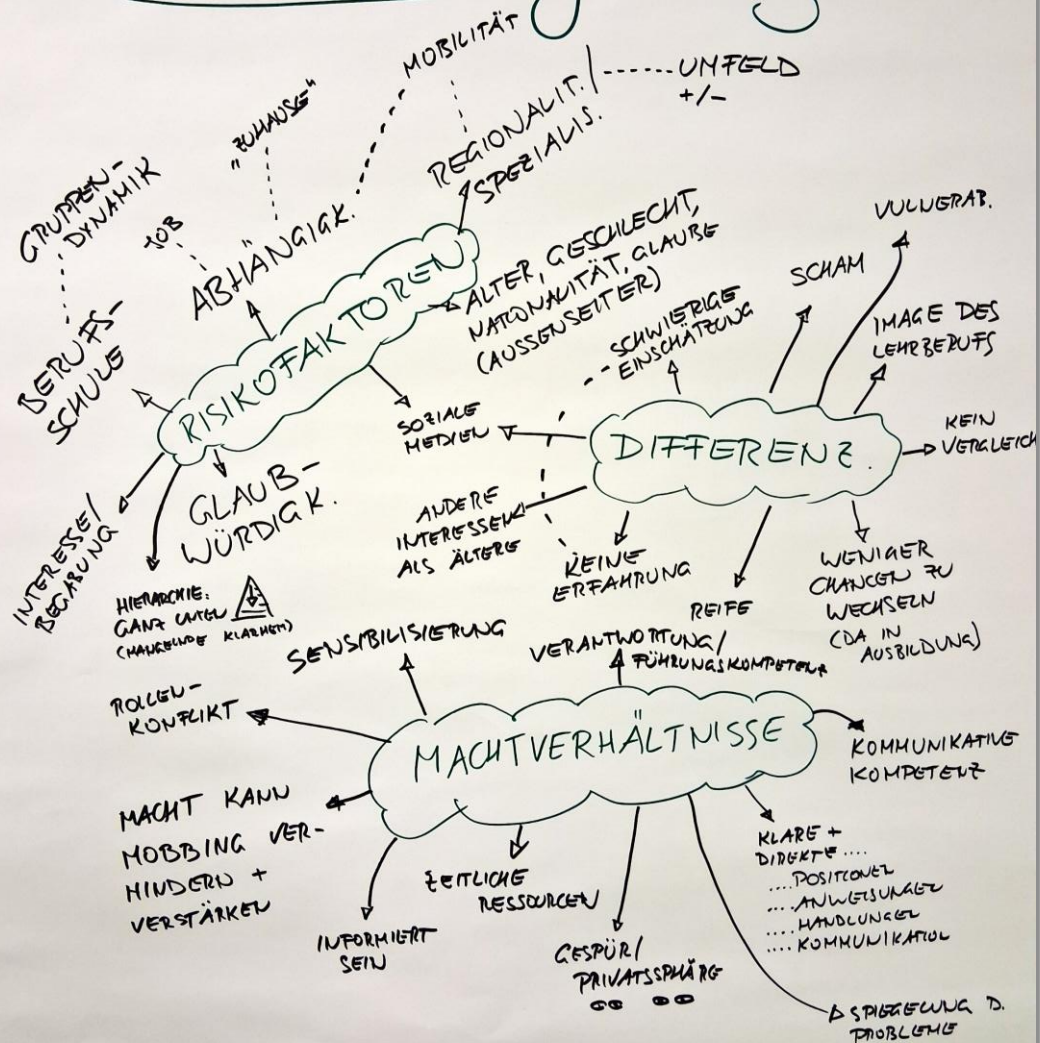 MOBILITÄT
REGIONALIT. /
SPEZIALIS.
UMFELD
+/-
"ZUHAUSE"
GRUPPEN-
DYNAMIK
JOB
ABHÄNGIGK.
BERUFS-
SCHULE
RISIKOFAKTOREN
ALTER, GESCHLECHT,
NATIONALITÄT, GLAUBE
(AUSSENSEITER)
SOZIALE
MEDIEN
GLAUB-
WÜRDIGK.
INTERESSE/
BEGABUNG
HIERARCHIE:
GANZ UNTEN
(MANGELNDE KLARHEIT)
VULNERAB.
SCHAM
SCHWIERIGE
EINSCHÄTZUNG
IMAGE DES
LEHRBERUFS
DIFFERENZ.
KEIN
VERGLEICH
ANDERE
INTERESSEN
ALS ÄLTERE
KEINE
ERFAHRUNG
REIFE
WENIGER
CHANCEN ZU
WECHSELN
(DA IN
AUSBILDUNG)
SENSIBILISIERUNG
VERANTWORTUNG/
FÜHRUNGSKOMPETENZ
ROLLEN-
KONFLIKT
MACHTVERHÄLTNISSE
KOMMUNIKATIVE
KOMPETENZ
MACHT KANN
MOBBING VER-
MINDERN +
VERSTÄRKEN
INFORMIERT
SEIN
ZEITLICHE
RESSOURCEN
GESPÜR/
PRIVATSSPHÄRE
KLARE +
DIREKTE ....
....POSITIONEN
....ANWEISUNGEN
....HANDLUNGEN
....KOMMUNIKATION
SPIEGELUNG D.
PROBLEME